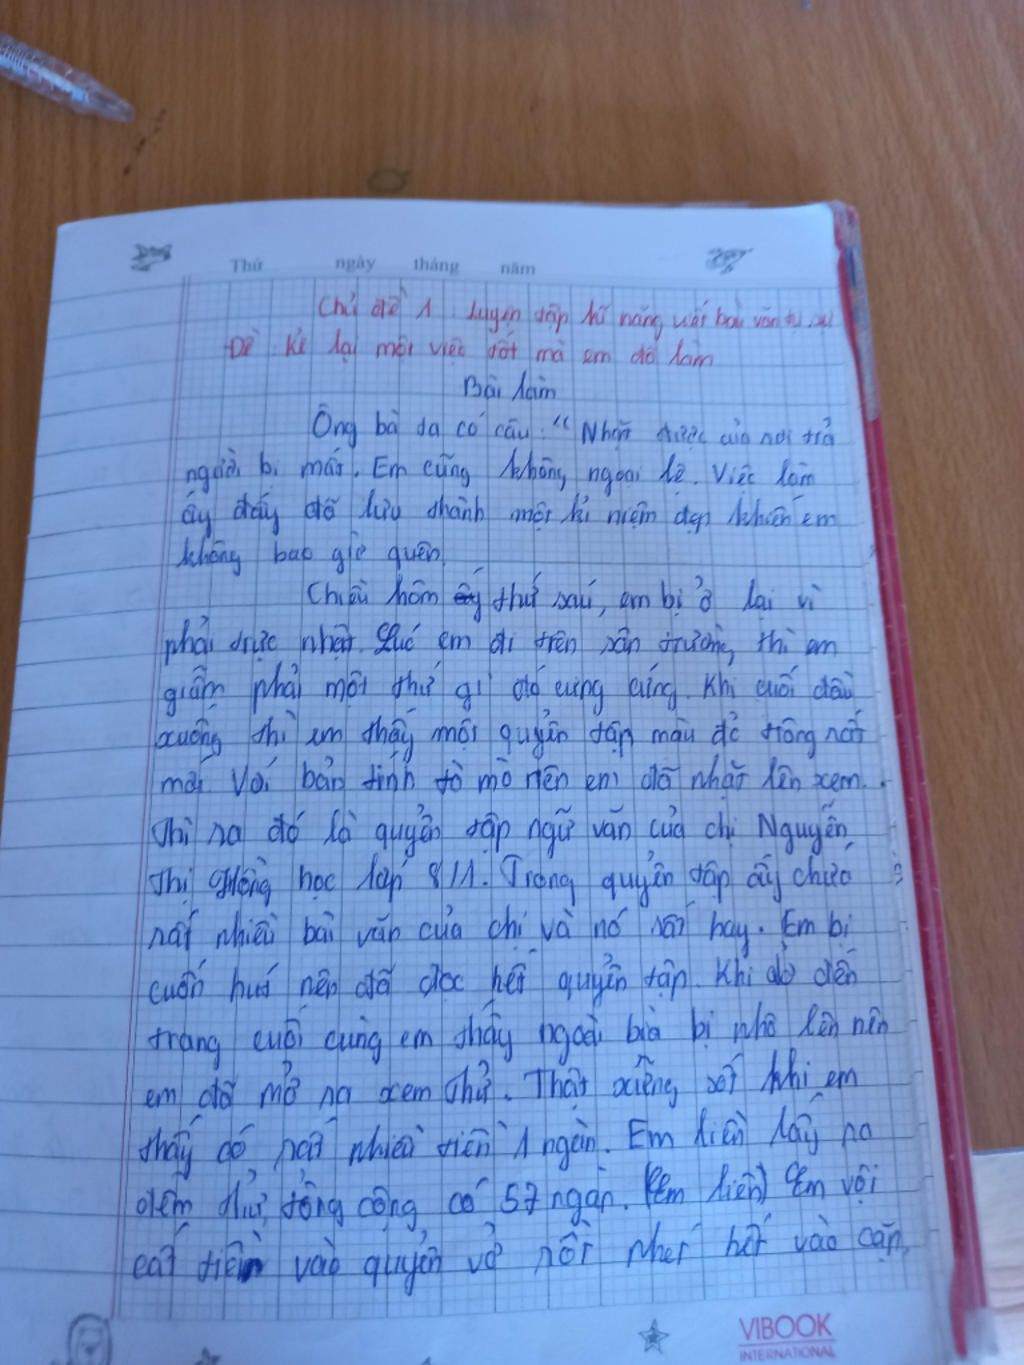 Thứ ngày tháng năm
Chủ đề 1: Luyện tập kĩ năng viết bài văn tự sự
Đề Kể lại một việc tốt mà em đã làm
Bài làm
Ông bà ta có câu: "Nhặt được của rơi trả
người bị mất. Em cũng không ngoại lệ. Việc làm
ấy đấy đã lưu thành một kỉ niệm đẹp khiến em
không bao giờ quên.
Chiều hôm thứ sáu, em bị ở lại vì
phải trực nhật. Lúc em đi trên sân trường, thì em
giẫm phải một thứ gì đó cứng cứng. Khi cuối đầu
xuống thì em thấy một quyển tập màu đỏ trông rất
mới. Với bản tính tò mò nên em đã nhặt lên xem.
Thì ra đó là quyển tập ngữ văn của chị Nguyễn
Thị Hồng học lớp 8/1. Trong quyển tập ấy chứa
rất nhiều bài văn của chị và nó rất hay. Em bị
cuốn hút nên đã đọc hết quyển tập. Khi dở đến
trang cuối cùng em thấy ngoài bìa bị nhô lên nên
em đã mở ra xem thử. Thật xững sốt khi em
thấy có rất nhiều tiền 1 ngàn. Em liền lấy ra
đếm thử, tổng cộng có 57 ngàn. (Em liền) Em vội
cất tiền vào quyển vở rồi nhét hết vào cặp,
VIBOOK
INTERNATIONAL